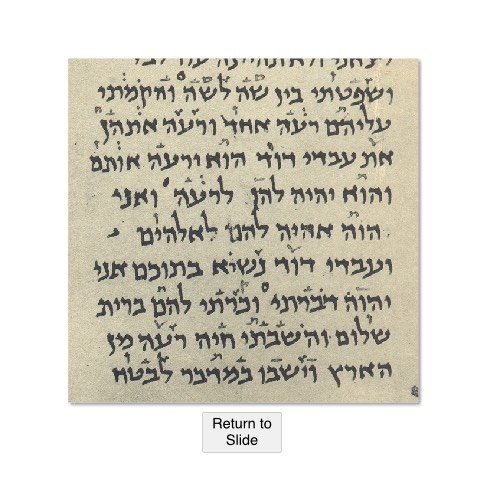 לצאני ולא תהיינה עוד לבז
ושפטתי בין שה לשה והקמתי
עליהם רעה אחד ורעה אתהן
את עבדי דויד הוא ירעה אותם
והוא יהיה להן לרעה ואני
יהוה אהיה להם לאלהים
ועבדי דוד נשיא בתוכם אני
יהוה דברתי וכרתי להם ברית
שלום והשבתי חיה רעה מן
הארץ וישבו במדבר לבטח
Return to
Slide